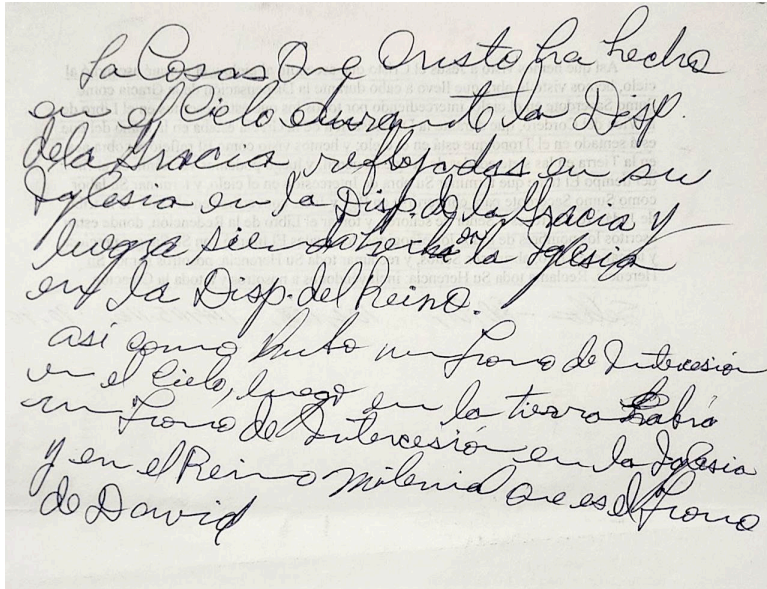 La Cosas Que Cristo ha hecho
en el Cielo durante la Disp.
de la Gracia reflejadas en su
Iglesia en la Disp. de la Gracia y
luego se en la Iglesia
en la Disp. del Reino.
así como hubo un Trono de Intercesión
en el Cielo, luego en la tierra habrá
un Trono de Intercesión en la Iglesia
y en el Reino Milenial que es el Trono
de David